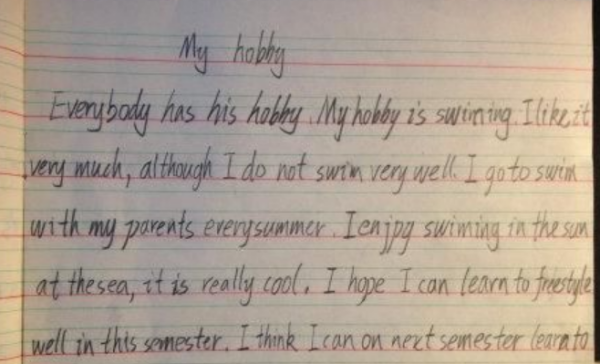 My hobby
Everybody has his hobby. My hobby is swiming. I like it
very much, although I do not swim very well. I go to swim
with my parents every summer. I enjpy swiming in the sun
at the sea, it is really cool. I hope I can learn to freestyle
well in this semester. I think I can on next semester learn to